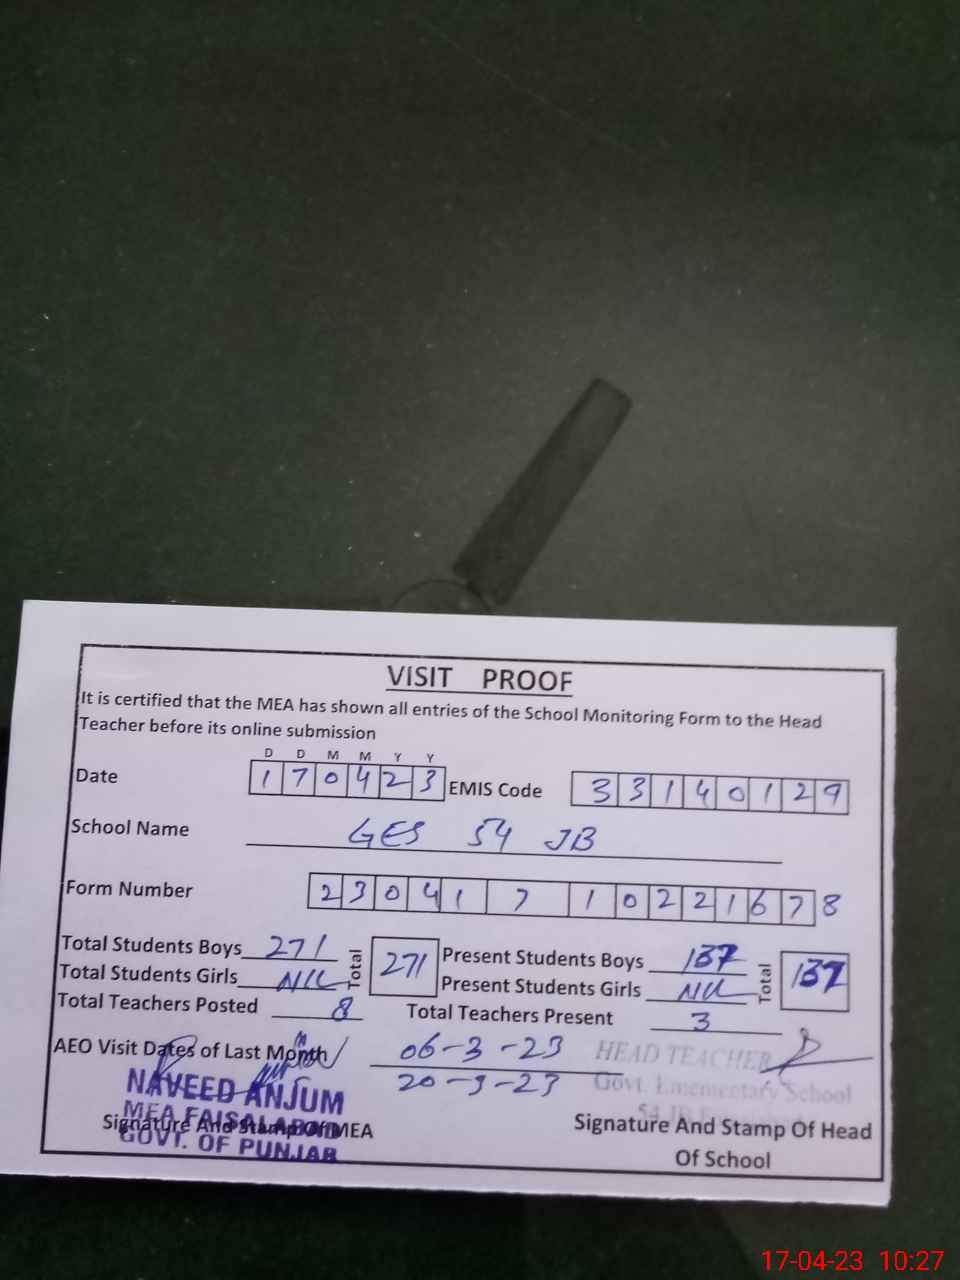 VISIT PROOF
It is certified that the MEA has shown all entries of the School Monitoring Form to the Head
Teacher before its online submission
D D M M Y Y
Date 1 7 0 4 2 3 EMIS Code 3 3 1 4 0 1 2 9
School Name GES 54 JB
Form Number 2 3 0 4 1 7 1 0 2 2 1 6 7 8
Total Students Boys 271 Total 271 Present Students Boys 137 Total 137
Total Students Girls Nil Present Students Girls Nil
Total Teachers Posted 8 Total Teachers Present 3
AEO Visit Dates of Last Month 06-3-23
20-3-23
HEAD TEACHER
Govt. Emementary School
54 JB
NAVEED ANJUM
MEA FAISALABAD
GOVT. OF PUNJAB
Signature And Stamp Of MEA
Signature And Stamp Of Head
Of School
17-04-23 10:27